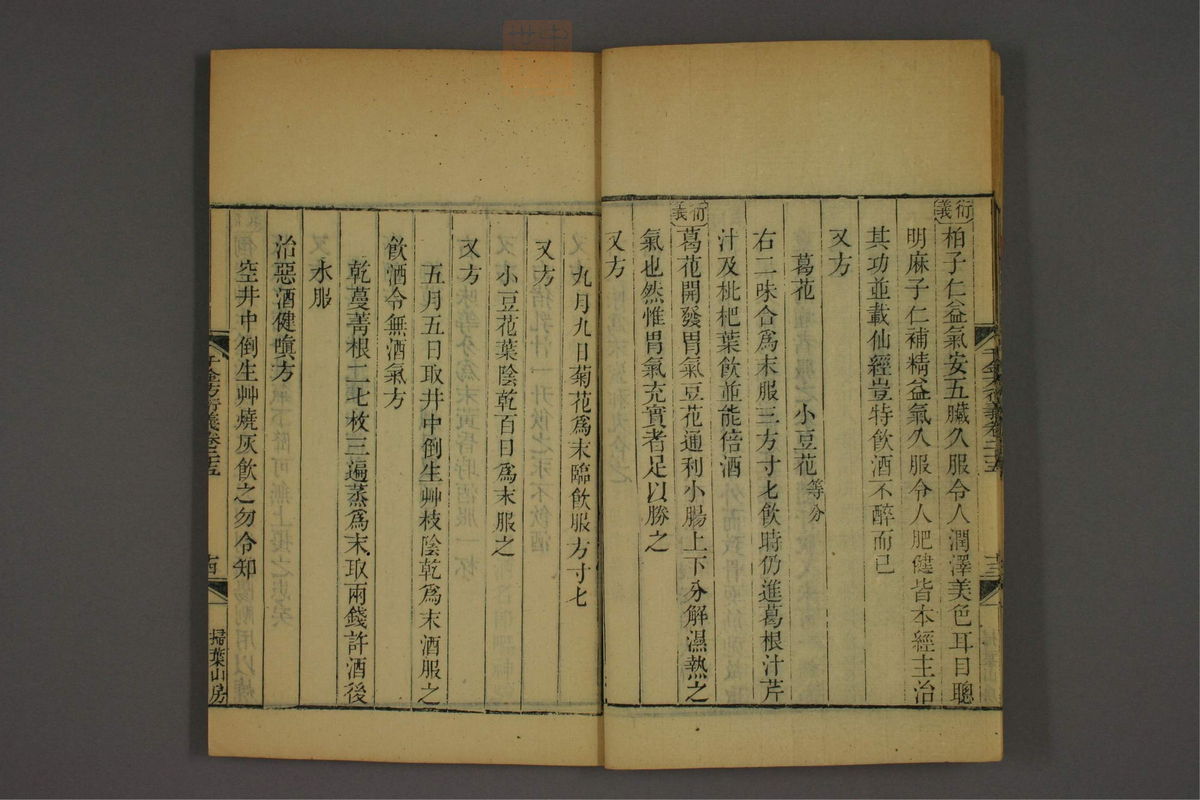 衍義 柏子仁益氣安五臟久服令人潤澤美色耳目聰
明麻子仁補精益氣久服令人肥健皆本經主治
其功並載仙經豈特飲酒不醉而已
又方
葛花 小豆花等分
右二味合爲末服三方寸匕飲時仍進葛根汁芹
汁及枇杷葉飲並能倍酒
衍義 葛花開發胃氣豆花通利小腸上下分解濕熱之
氣也然惟胃氣充實者足以勝之
又方
九月九日菊花爲末臨飲服方寸匕
又方
小豆花葉陰乾百日爲末服之
又方
五月五日取井中倒生艸枝陰乾爲末酒服之
飲酒令無酒氣方
乾蔓菁根二七枚三遍蒸爲末取兩錢許酒後
水服
治惡酒健嗔方
空井中倒生艸燒灰飲之勿令知
千金方衍義卷二十五
十三
千金方衍義卷二十五
十四
掃葉山房